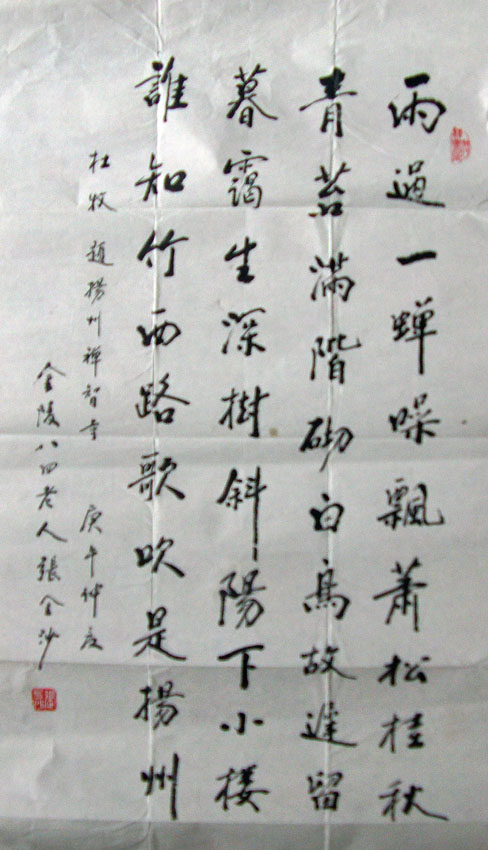 雨過一蟬噪飄蕭松桂秋
青苔滿階砌白鳥故遲留
暮靄生深樹斜陽下小樓
誰知竹西路歌吹是揚州
杜牧 題揚州禪智寺 庚午仲夏
金陵八四老人張金沙